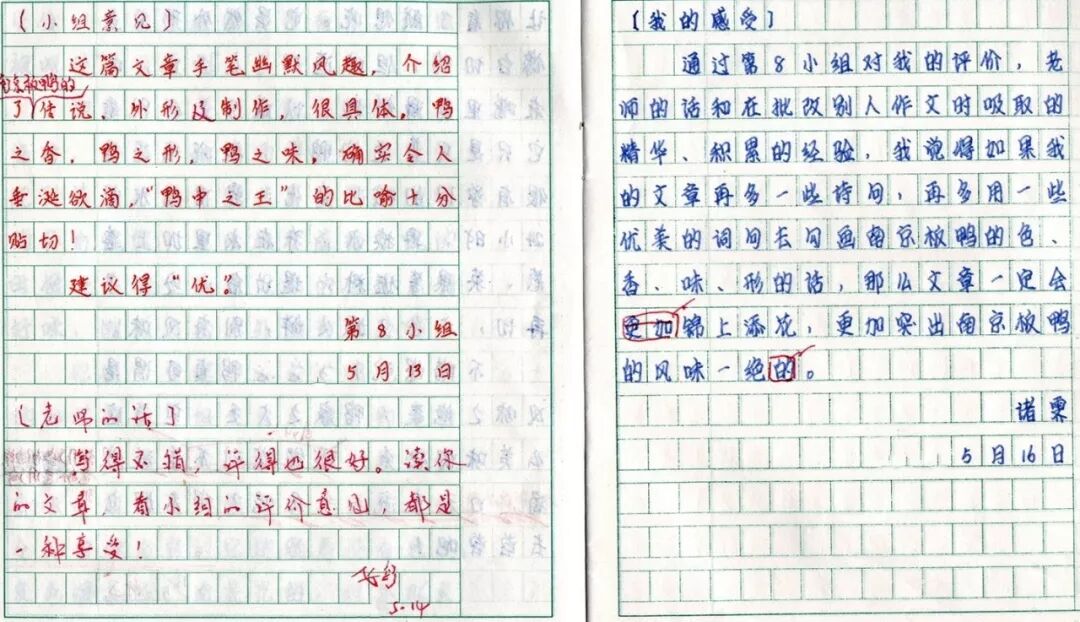 （小组意见）
这篇文章手笔幽默风趣，介绍
南京板鸭的
了传说、外形及制作，很具体。鸭
之香，鸭之形，鸭之味，确实令人
垂涎欲滴，“鸭中之王”的比喻十分
贴切！
建议得“优”。
第8小组
5月13日
（老师的话）
写得不错，评得也很好。读你
的文章，看小组的评价意见，都是
一种享受！
5.14
（我的感受）
通过第8小组对我的评价，老
师的话和在批改别人作文时吸取的
精华、积累的经验，我觉得如果我
的文章再多一些诗句，再多用一些
优美的词句去勾画南京板鸭的色、
香、味、形的话，那么文章一定会
更加锦上添花，更加突出南京板鸭
的风味一绝的。
诸栗
5月16日